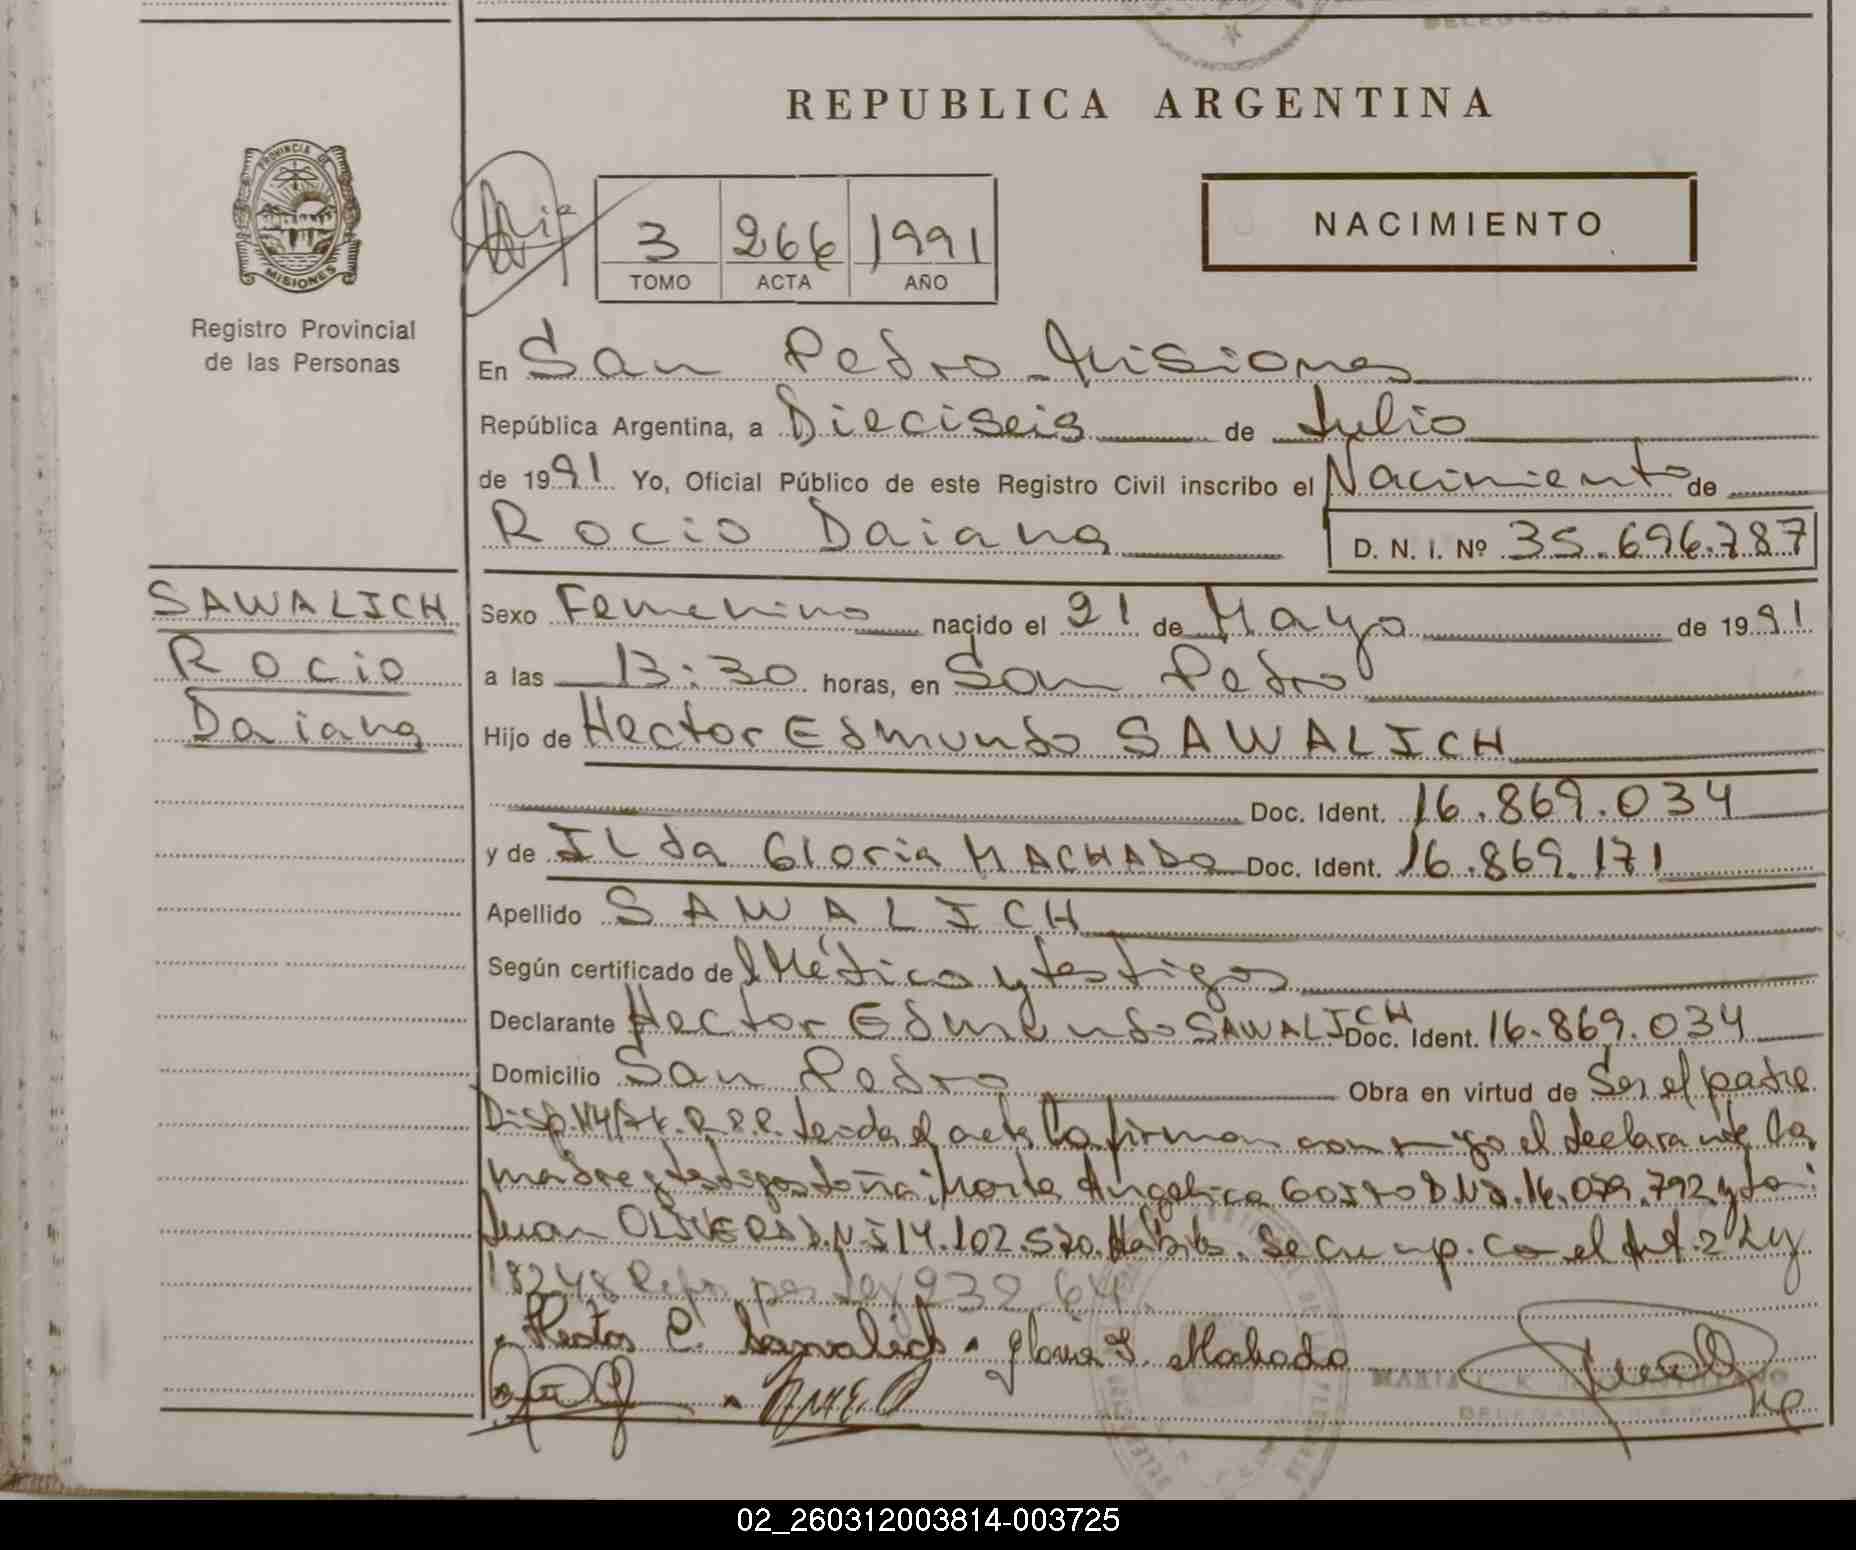 REPUBLICA ARGENTINA
PROVINCIA DE
MISIONES
Registro Provincial
de las Personas
3 266 1991
TOMO ACTA AÑO
NACIMIENTO
En San Pedro Misiones
República Argentina, a Dieciseis de Julio
de 1991 Yo, Oficial Público de este Registro Civil inscribo el Nacimiento de
Rocio Daiana D. N. I. Nº 35.696.787
SAWALICH
Rocio
Daiana
Sexo Femenino nacido el 21 de Mayo de 1991
a las 13:30 horas, en San Pedro
Hijo de Hector Edmundo SAWALICH
Doc. Ident. 16.869.034
y de ILda Gloria MACHADO Doc. Ident. 16.869.171
Apellido SAWALICH
Según certificado de Médico y testigos
Declarante Hector Edmundo SAWALICH Doc. Ident. 16.869.034
Domicilio San Pedro Obra en virtud de Ser el padre
el acta la firman conmigo el declarante la
madre y testigos doña: Angelica D.N.I. 16.079.792 y
Juan OLIVERA D.N.I 14.102.520. Se cump. con el Art. 2 Ley
18248 por Ley 232 64.
Hector E. Sawalich Gloria I. Machado
02_260312003814-003725